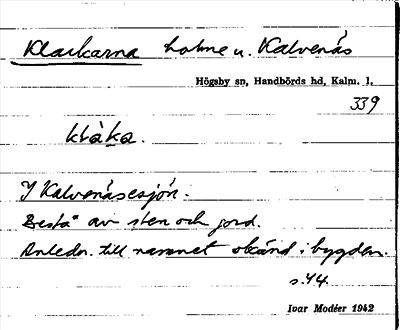 Klackarna holme u. Kalvenäs
Högsby sn, Handbörds hd, Kalm. l.
339
klàka.
I Kalvenäsesjön.
Bestå av sten och jord.
Anledn. till namnet okänd i bygden.
s. 44.
Ivar Modéer 1942